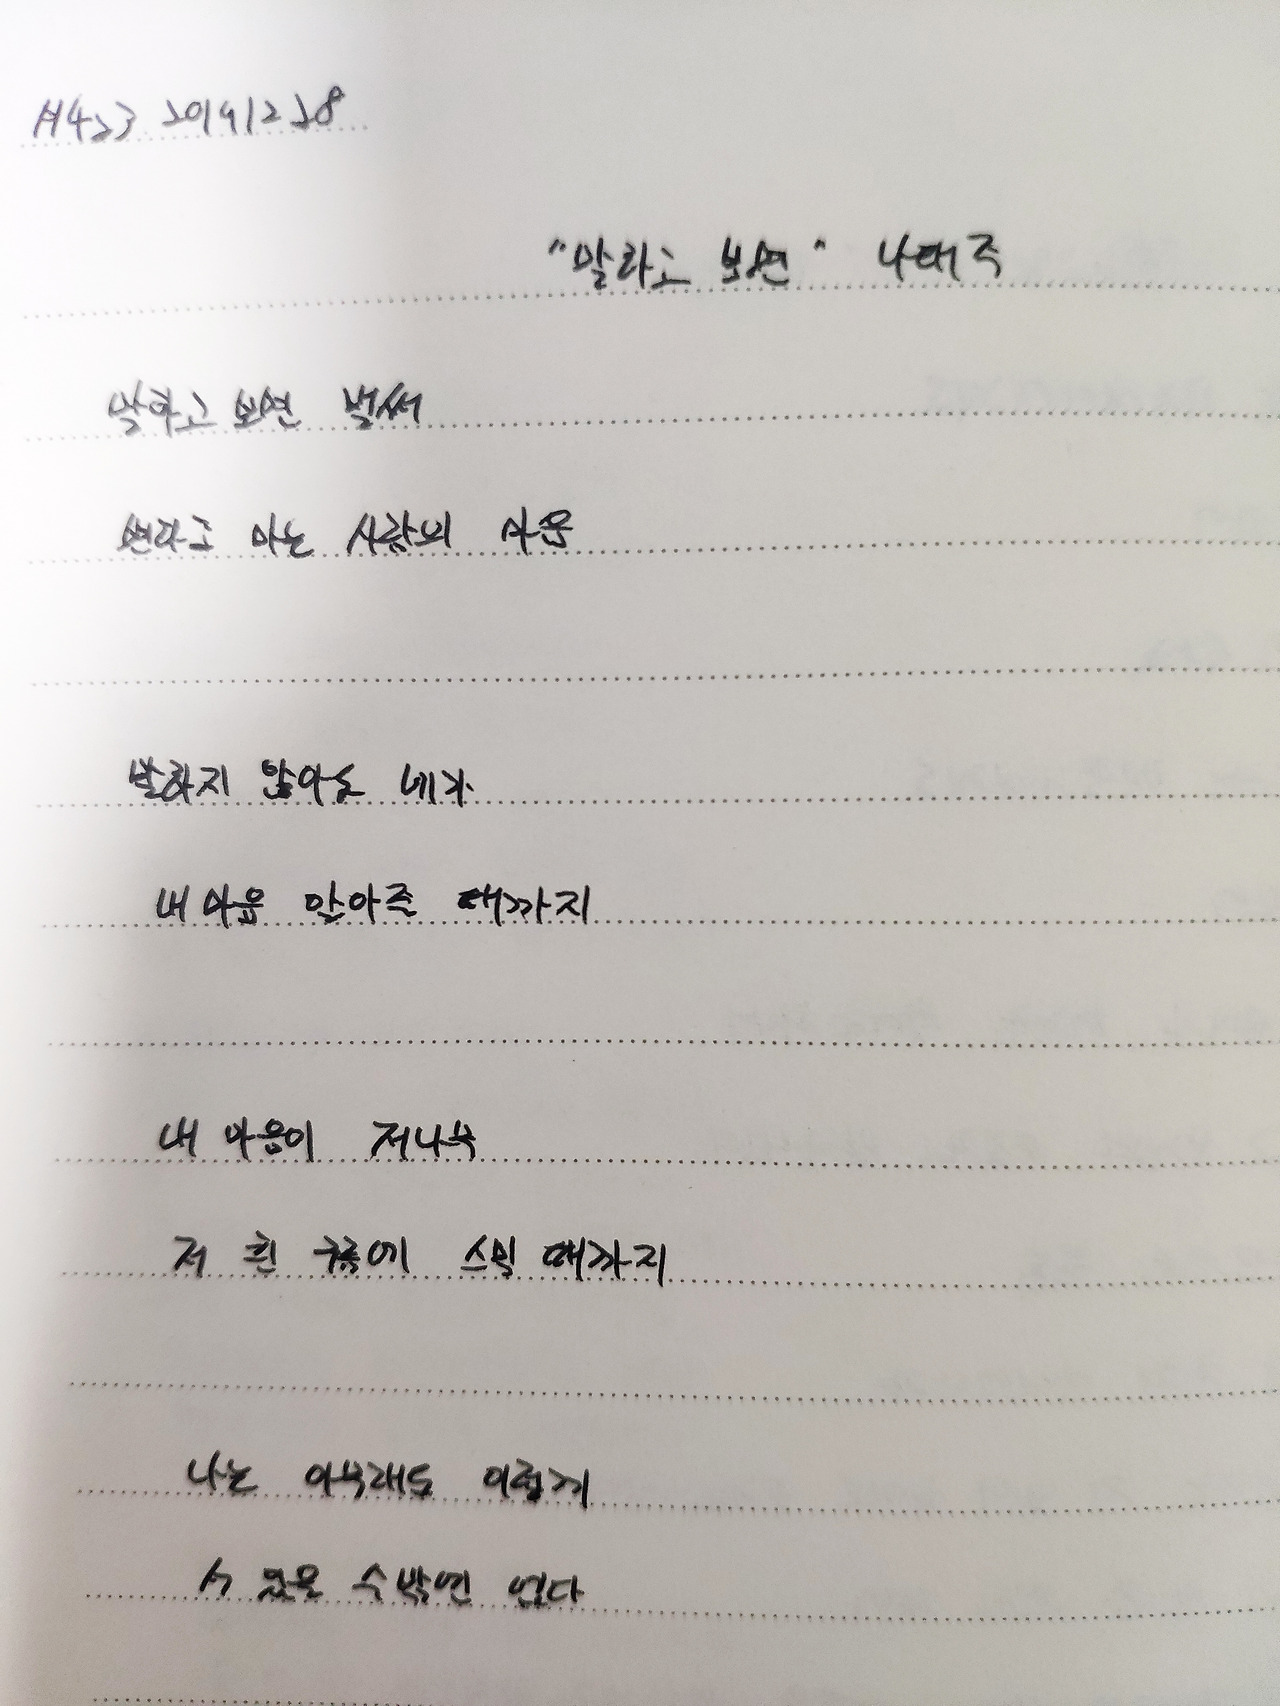 #423 20191228
"말하고 보면" 나태주
말하고 보면 벌써
변하고 마는 사람의 마음
말하지 않아도 네가
내 마음 알아줄 때까지
내 마음이 저나무
저 흰 구름에 스밀 때까지
나는 아무래도 이렇게
서 있을 수밖엔 없다